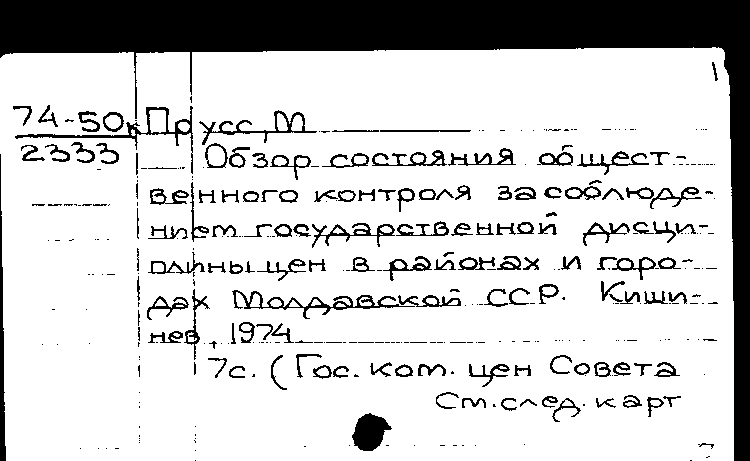 1
74-50к Прусс, М
2333 Обзор состояния общест-
венного контроля за соблюде-
нием государственной дисци-
плины цен в районах и горо-
дах Молдавской ССР. Киши-
нев, 1974.
7с. (Гос. ком. цен Совета
См. след. карт